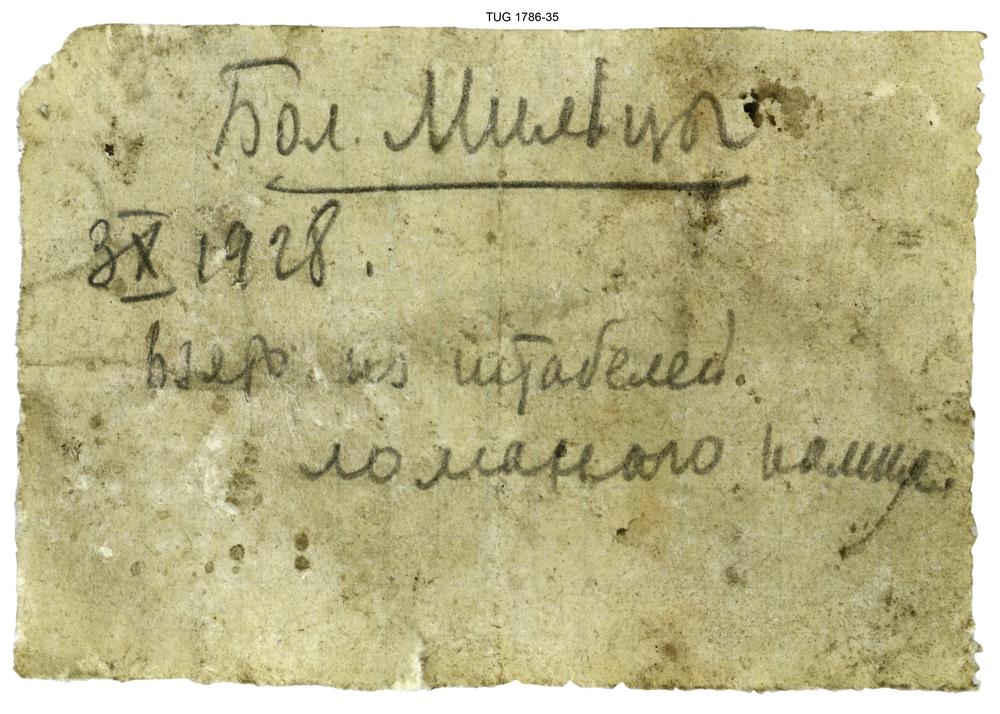 TUG 1786-35
Бол. Мильцы
3 X 1928.
взято из штабелей.
ломаного камня.